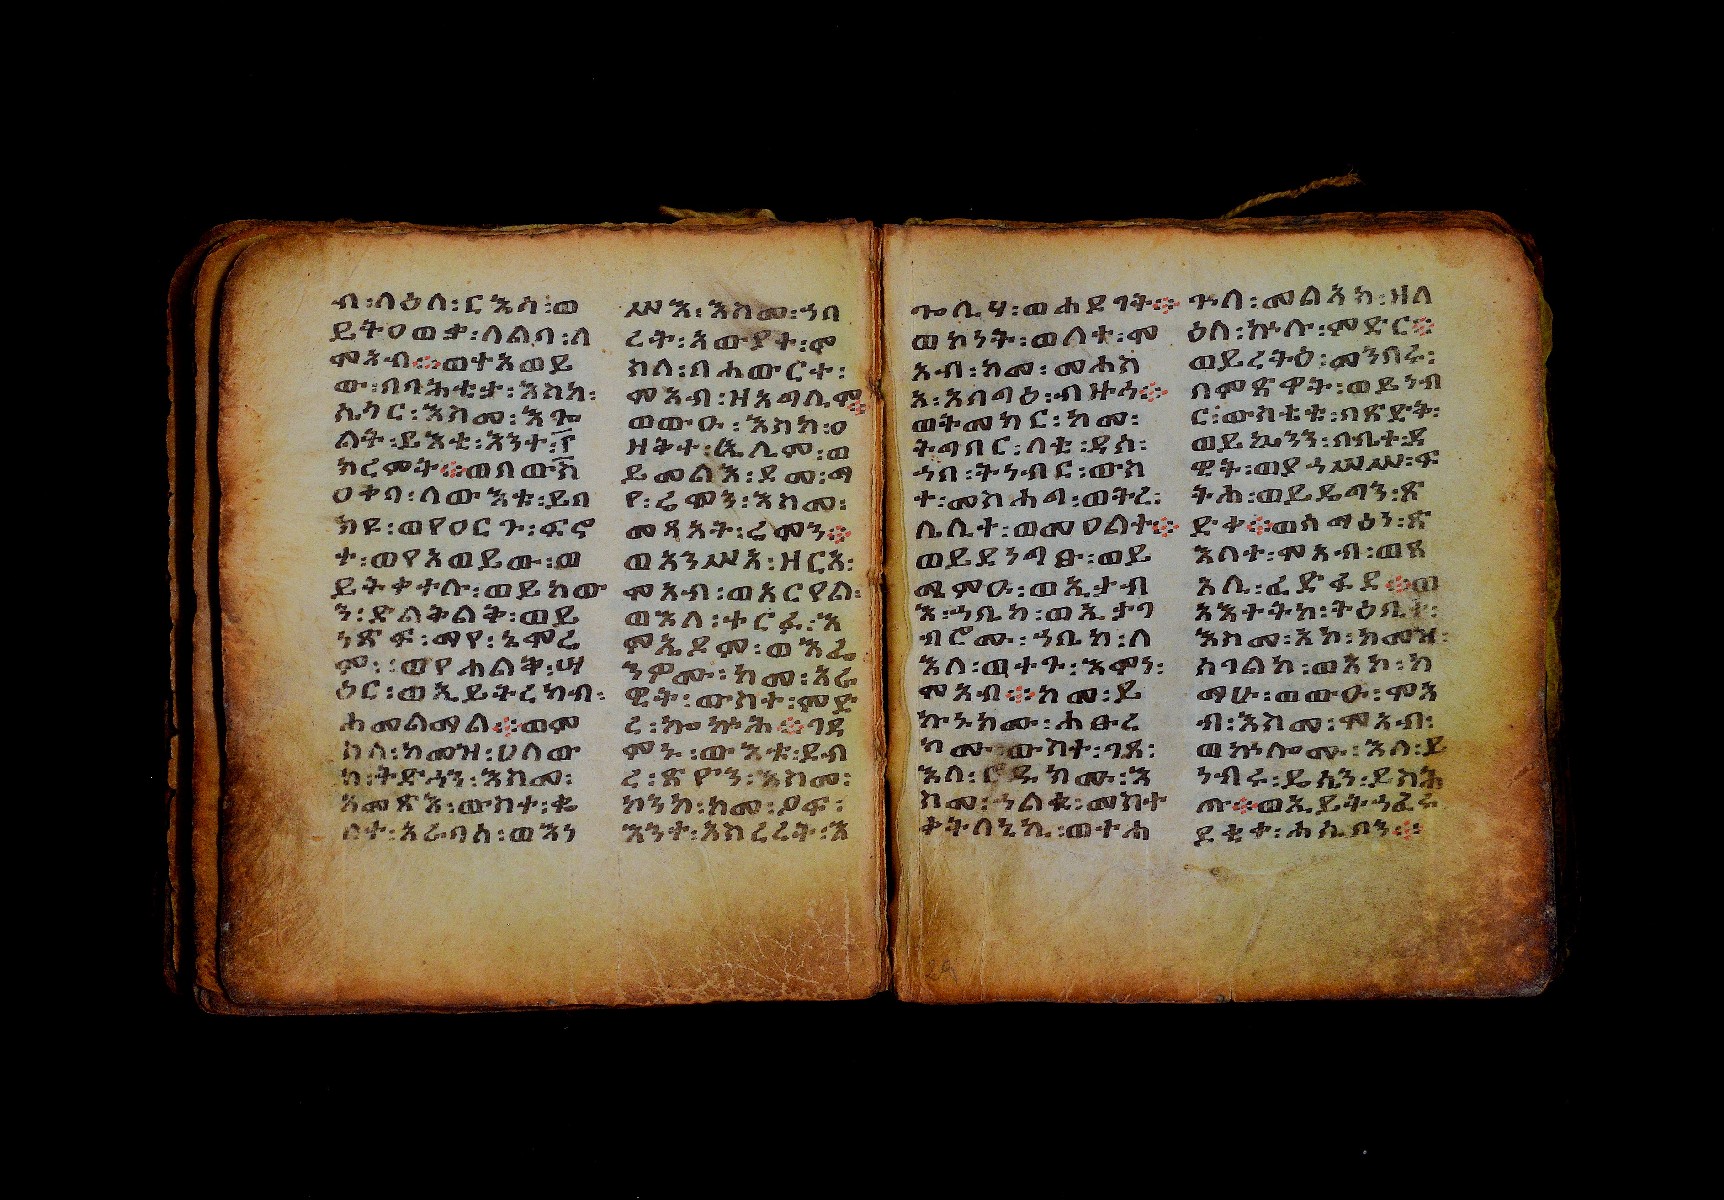 ብ፡ላዕለ፡ርእሳ፡ወ
ይትዐወቃ፡ለልባ፡ለ
ሞአብ፡፡ወተአወይ
ው፡በባሕቲታ፡እስከ፡
ሴጎር፡እስመ፡እጐ
ልት፡ይእቲ፡እንተ፡፫
ክረምት፡፡ወበውእ
ዐቀባ፡ለውእቱ፡ይበ
ክዩ፡ወየዐርጉ፡ፍኖ
ተ፡ወየአወይው፡ወ
ይትቀተሉ፡ወይከው
ን፡ድልቅልቅ፡ወይ
ነጽፍ፡ማየ፡ኔምሬ
ም፡፡ወየሐልቅ፡ሣ
ዕር፡ወኢይትረከብ፡
ሐመልማል፡፡ወሞ
ከለ፡ከመዝ፡ሀለው
ከ፡ትድኃን፡እስመ፡
አመጽእ፡ውስተ፡ቈ
ላተ፡አራባስ፡ወእነ
ሥእ፡እስመ፡ኀበ
ረት፡አውያተ፡ሞ
ከለ፡በሐውርተ፡
ሞአብ፡ዘአግሌም፡፡
ወውዑ፡እስከ፡ዐ
ዘቅተ፡ኤሌም፡ወ
ይመልእ፡ደመ፡ማ
የ፡ሬሞን፡እስመ፡
መጻአት፡ሬሞን፡፡
ወእንሥእ፡ዘርአ፡
ሞአብ፡ወአርየል፡
ወእለ፡ተርፉ፡እ
ምኤዶም፡ወእፌ
ንዎሙ፡ከመ፡አራ
ዊት፡ውስተ፡ምድ
ረ፡ኰኵሕ፡፡ገዳ
ሞኑ፡ውእቱ፡ደብ
ረ፡ጽዮን፡እስመ፡
ከንከ፡ከመ፡ዖፍ፡
እንተ፡አስረረት፡እ
ጐሊሃ፡ወሐደገት፡፡
ወከንት፡ወለተ፡ሞ
አብ፡ከመ፡መሐስ
እ፡እበግዕ፡ብዙኃ፡፡
ወትመክር፡ከመ፡
ትግበር፡ላቲ፡ዳስ፡
ኀበ፡ትነብር፡ውስ
ተ፡መስሐግ፡ወትረ፡
ሌሊተ፡ወመዐልተ፡፡
ወይደነግፁ፡ወይ
ሜምዑ፡ወኢታብ
እ፡ኀቤከ፡ወኢታገ
ብሮሙ፡ኀቤከ፡ለ
እለ፡ወተጉ፡እሞነ፡
ሞአብ፡፡ከመ፡ይ
ኩኑከሙ፡ሐፁረ
ከሙ፡ውስተ፡ገጸ፡
እለ፡ሮዱከሙ፡እ
ስመ፡ኀልቁ፡መስተ
ቃትላኒከ፡ወተሐ
ጕለ፡መልአከ፡ዘለ
ዕለ፡ኵሉ፡ምድር፡፡
ወይረትዕ፡መንበሩ፡
በምጽዋት፡ወይነብ
ር፡ውስቴቱ፡በጽድቅ፡
ወይኴንን፡በቤተ፡ዳ
ዊት፡ወያኀሥሥ፡ፍ
ትሐ፡ወይዴግን፡ጽ
ድቀ፡፡ወሰማዕነ፡ጽ
እለተ፡ሞአብ፡ወጸ
አሊ፡ፈድፋደ፡፡ወ
አእተትከ፡ትዕቢተ፡
እስመ፡አኮ፡ከመዝ፡
አገልከ፡ወአኮ፡ከ
ማሁ፡ወውዑ፡ሞአ
ብ፡እስመ፡ሞአብ፡
ወከነሎሙ፡እለ፡ይ
ነብሩ፡ዴሴን፡ይስሕ
ጡ፡፡ወኢይትኀፈሩ
ደቂቀ፡ሐሴቦን፡፡